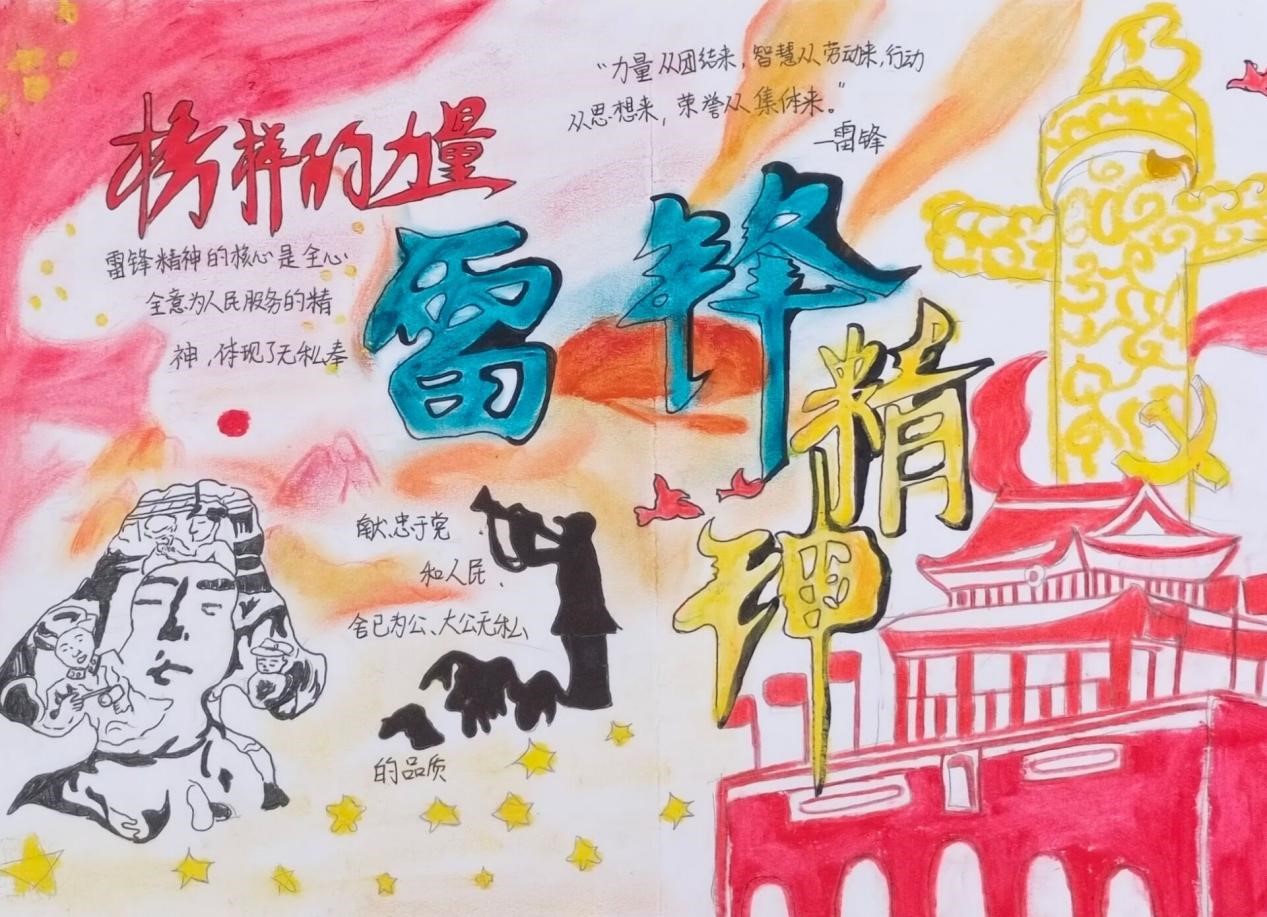 榜样的力量
“力量从团结来,智慧从劳动来,行动
从思想来,荣誉从集体来。”
—雷锋
雷锋
精神
雷锋精神的核心是全心
全意为人民服务的精
神,体现了无私奉
献,忠于党
和人民、
舍已为公、大公无私
的品质